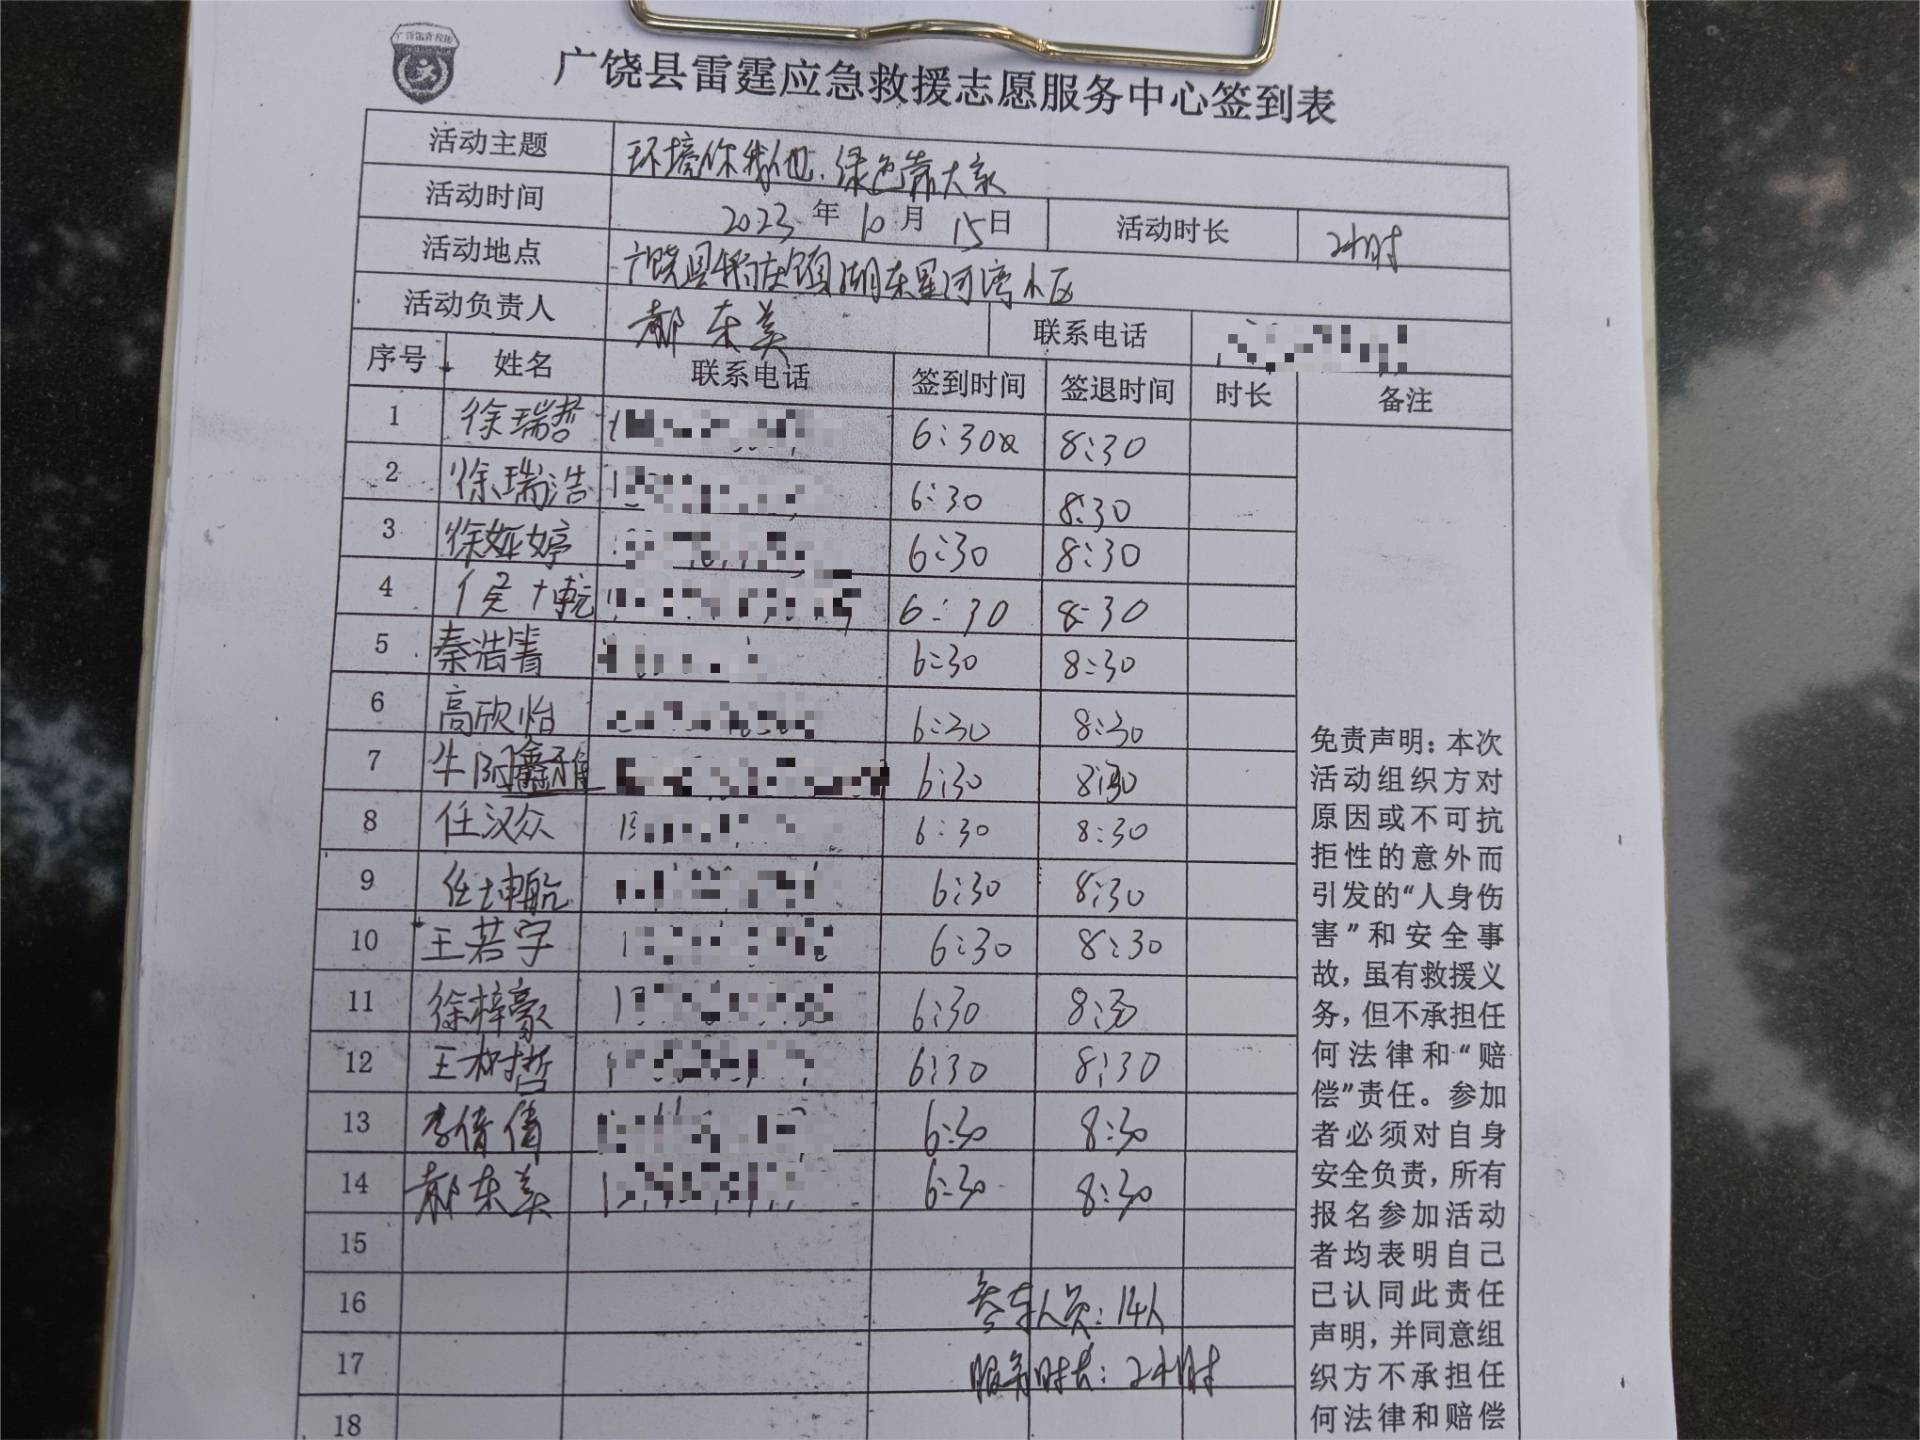 广饶县雷霆应急救援志愿服务中心签到表
活动主题 环境你我他、绿色靠大家
活动时间 2023年10月15日 活动时长 2小时
活动地点 广饶县 湖东星河湾小区
活动负责人 郝东美 联系电话
序号 姓名 联系电话 签到时间 签退时间 时长 备注
1 徐瑞哲 6:30 8:30
2 徐瑞浩 6:30 8:30
3 徐娅婷 6:30 8:30
4 6:30 8:30
5 秦浩箐 6:30 8:30
6 高欣怡 6:30 8:30
7 牛 6:30 8:30
8 任汉众 6:30 8:30
9 任坤航 6:30 8:30
10 王若宇 6:30 8:30
11 徐梓豪 6:30 8:30
12 王树哲 6:30 8:30
13 李倩倩 6:30 8:30
14 郝东美 6:30 8:30
15
16 参车人员：14人
17 服务时长：2小时
18
免责声明：本次
活动组织方对
原因或不可抗
拒性的意外而
引发的“人身伤
害”和安全事
故，虽有救援义
务，但不承担任
何法律和“赔
偿”责任。参加
者必须对自身
安全负责，所有
报名参加活动
者均表明自己
已认同此责任
声明，并同意组
织方不承担任
何法律和赔偿